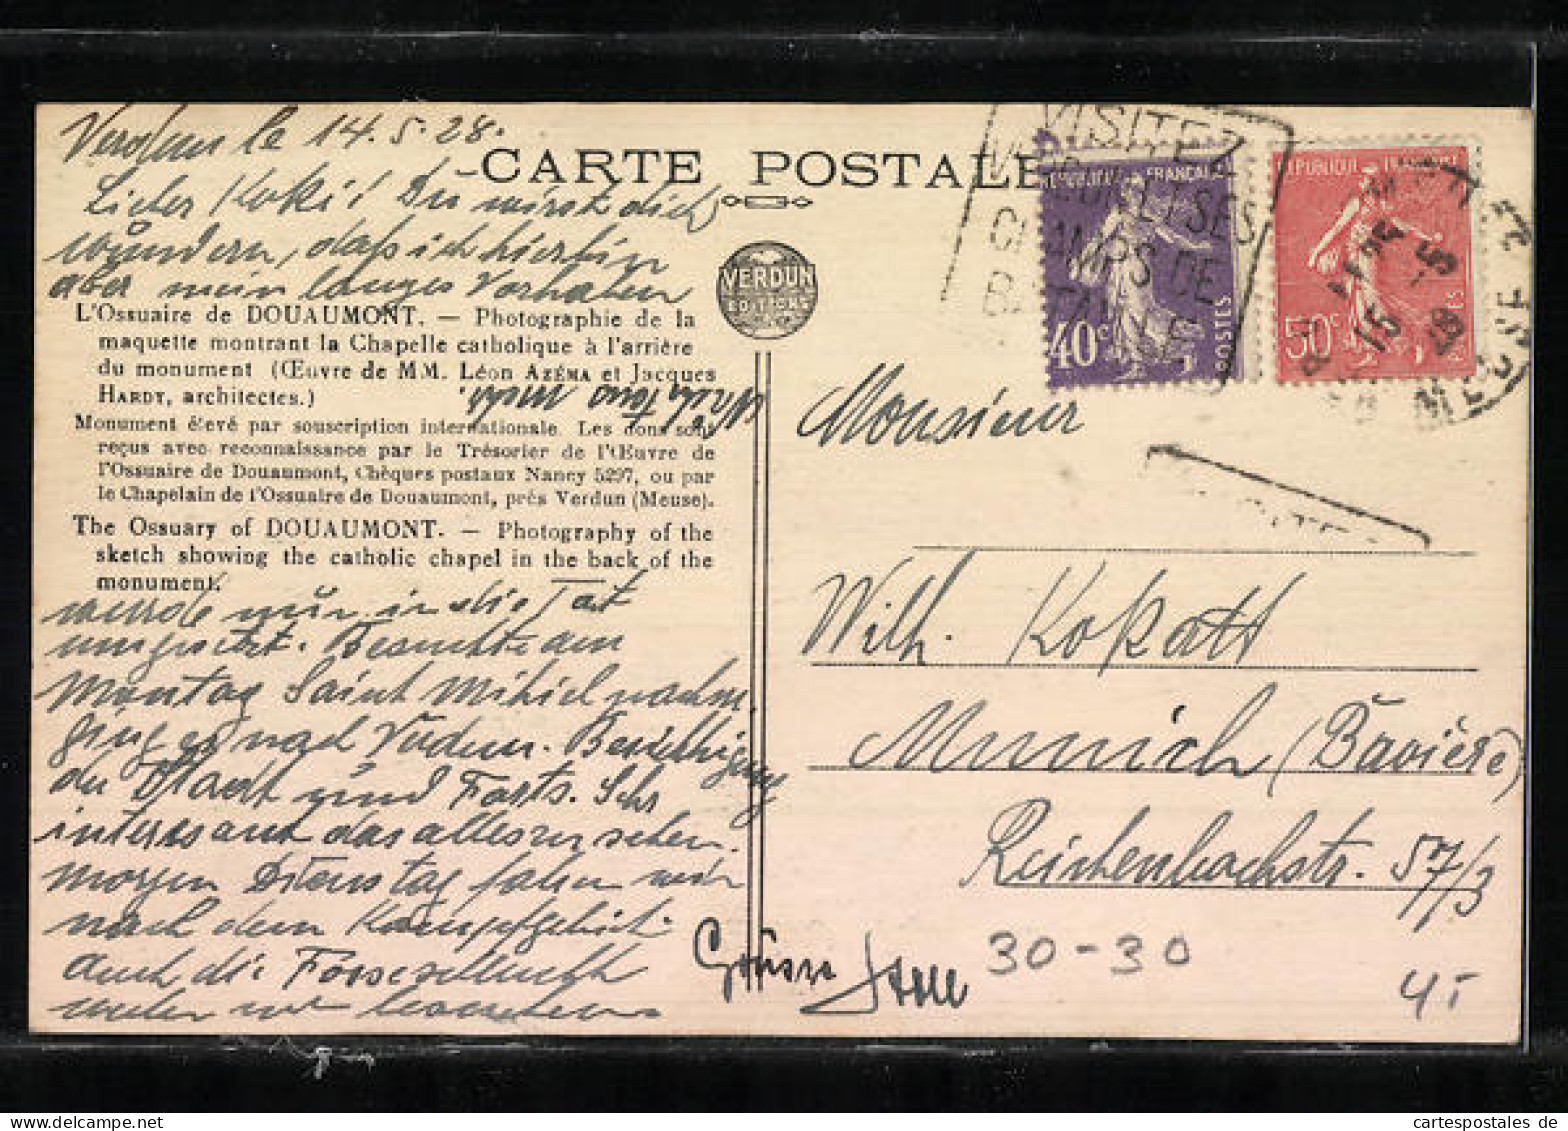 Verdun le 14.5.28.
CARTE POSTALE
Lieber Koki! Du wirst dich
wundern, dass ich hier bin
aber mein langes Vorhaben
VERDUN
L'Ossuaire de DOUAUMONT. — Photographie de la
maquette montrant la Chapelle catholique à l'arrière
du monument (Œuvre de MM. Léon AZÉMA et Jacques
HARDY, architectes.)
Monument élevé par souscription internationale. Les dons sont
reçus avec reconnaissance par le Trésorier de l'Œuvre de
l'Ossuaire de Douaumont, Chèques postaux Nancy 5297, ou par
le Chapelain de l'Ossuaire de Douaumont, près Verdun (Meuse).
The Ossuary of DOUAUMONT. — Photography of the
sketch showing the catholic chapel in the back of the
monument.
wurde nun in die Tat
umgesetzt. Besuchte am
Montag Saint Mihiel nachm.
ging es nach Verdun. Besichtigung
der Stadt und Forts. Sehr
interessant das alles zu sehen.
Morgen Dienstag fahren wir
nach dem Kampfgebiet.
auch die
werden wir besuchen.
Grüsse
VISITEZ
VERDUN ET SES
CHAMPS DE
BATAILLE
40c
POSTES
50c
15 -5 28
MEUSE
Monsieur
Wilh. Kokott
Munich (Bavière)
Reichenbachstr. 57/3
30-30
4,-
cartespostales de